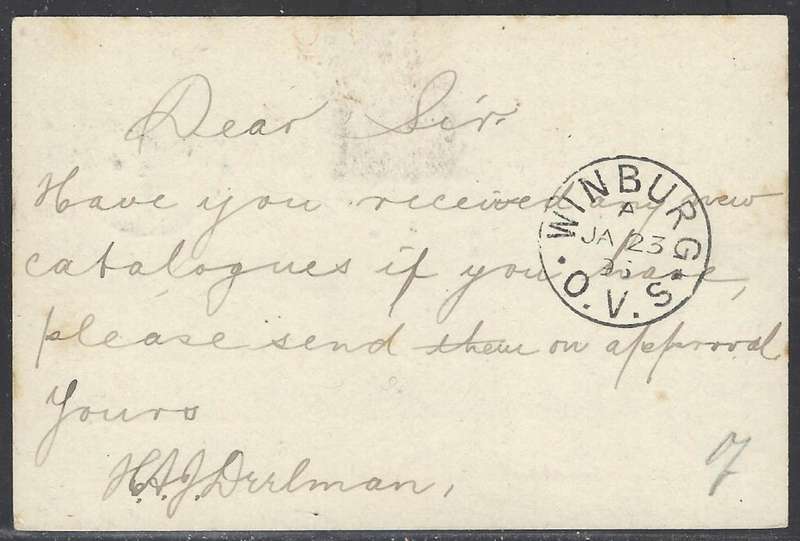 Dear Sir.
Have you received any new
catalogues if you have,
please send them on approval
Yours
H.A.J.
WINBURG
A
JA 23
O.V.S.
7